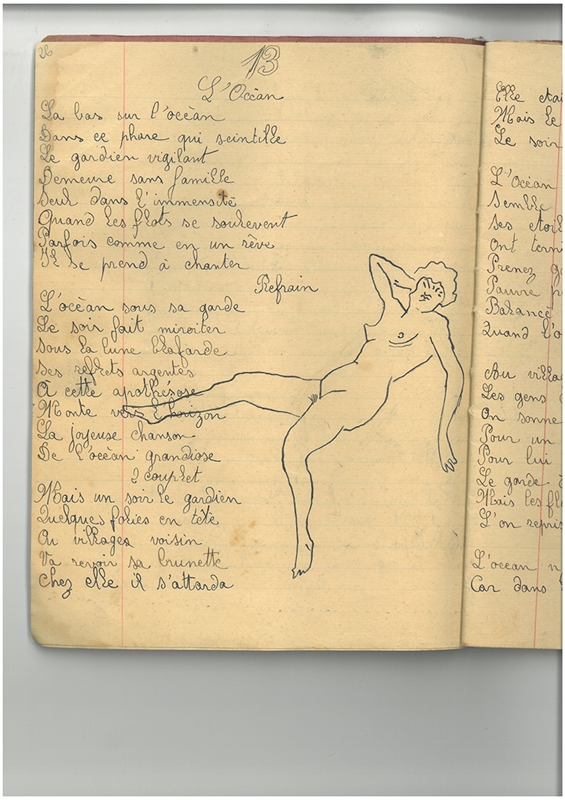 26
13
L'Océan
La bas sur l'océan
Dans ce phare qui scintille
Le gardien vigilant
Demeure sans famille
Seul dans l'immensité
Quand les flots se soulevent
Parfois comme en un rêve
Il se prend à chanter
Refrain
L'océan sous sa garde
Le soir fait miroiter
Sous la lune blafarde
Ses reflets argentés
A cette apothéose
Monte vers l'horizon
La joyeuse chanson
De l'océan grandiose
2 couplet
Mais un soir le gardien
Quelques folies en tête
Au villages voisin
Va revoir sa brunette
Chez elle il s'attarda
Elle etai
Mais le
Le soir
L'Océan
Semble
Ses etoil
Ont terni
Prenez g
Pauvre
Balancé
Quand l'o
Au villa
Les gens
On sonne
Pour un
Pour lui
Le garde
Mais les fl
L'on repris
L'océan n
Car dans